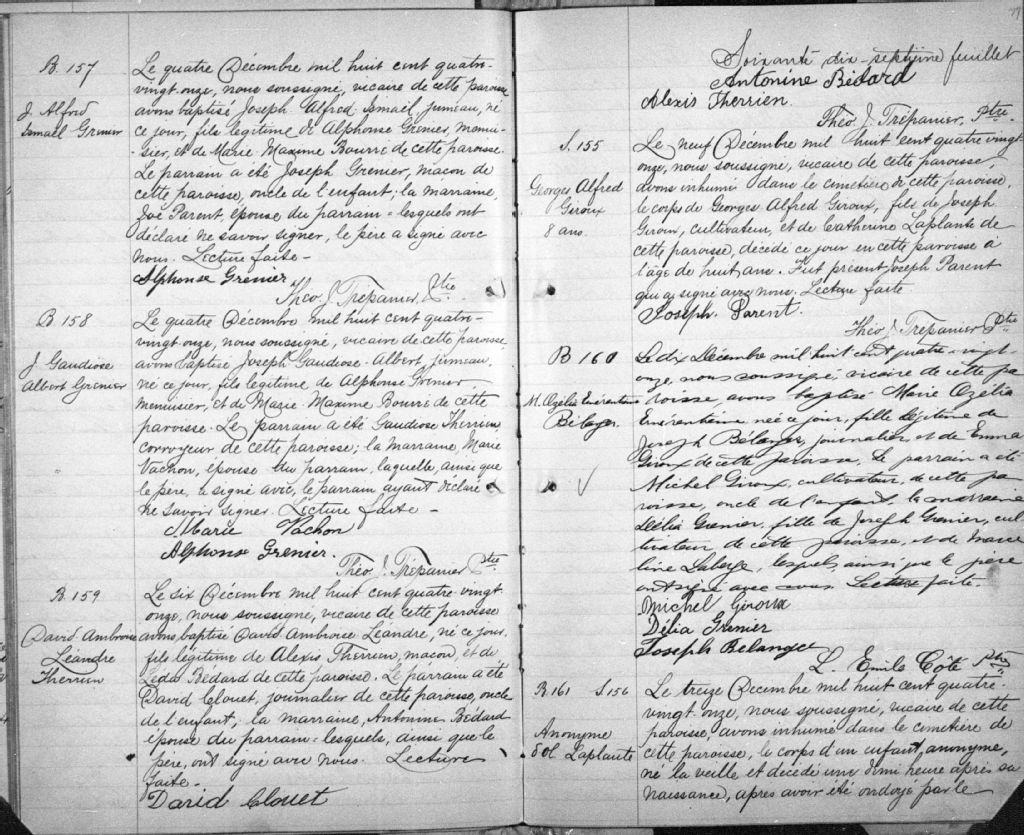 B. 157
J. Alfred
Ismaël Grenier
Le quatre Décembre mil huit cent quatre-
vingt-onze, nous soussigné, vicaire de cette paroisse
avons baptisé Joseph Alfred Ismaël, jumeau, né
ce jour, fils légitime de Alphonse Grenier, menui-
sier, et de Marie Maxime Bourré de cette paroisse.
Le parrain a été Joseph Grenier, maçon de
cette paroisse, oncle de l'enfant; la marraine,
Zoé Parent, épouse du parrain - lesquels ont
déclaré ne savoir signer, le père a signé avec
nous. Lecture faite -
Alphonse Grenier
Théo. J. Trépanier, Ptre
B 158
J. Gaudiose
Albert Grenier
Le quatre Décembre mil huit cent quatre-
vingt-onze, nous soussigné, vicaire de cette paroisse
avons baptisé Joseph Gaudiose Albert, jumeau,
né ce jour, fils légitime de Alphonse Grenier
menuisier, et de Marie Maxime Bourré de cette
paroisse. Le parrain a été Gaudiose Therrien
corroyeur de cette paroisse; la marraine, Marie
Vachon, épouse du parrain, laquelle, ainsi que
le père, a signé avec, le parrain ayant déclaré
ne savoir signer. Lecture faite -
Marie Vachon
Alphonse Grenier.
Théo J. Trépanier Ptre
B. 159
David Ambroise
Léandre
Therrien
Le six Décembre mil huit cent quatre-vingt
onze, nous soussigné, vicaire de cette paroisse
avons baptisé David Ambroise Léandre, né ce jour,
fils légitime de Alexis Therrien, maçon, et de
Léda Bédard de cette paroisse. Le parrain a été
David Clouet, journalier de cette paroisse, oncle
de l'enfant; la marraine, Antonine Bédard
épouse du parrain - lesquels, ainsi que le
père, ont signé avec nous. Lecture
faite.
David Clouet
Soixante dix-septième feuillet
Antonine Bédard
Alexis Therrien.
Théo. J. Trépanier, Ptre.
S. 155
Georges Alfred
Giroux
8 ans
Le neuf Décembre mil huit cent quatre vingt-
onze, nous soussigné, vicaire de cette paroisse,
avons inhumé dans le cimetière de cette paroisse,
le corps de Georges Alfred Giroux, fils de Joseph
Giroux, cultivateur, et de Catherine Laplante de
cette paroisse, décédé ce jour en cette paroisse à
l'âge de huit ans. Fut présent Joseph Parent
qui a signé avec nous. Lecture faite
Joseph. Parent.
Théo J. Trépanier Ptre
B 160
M. Ozélia Emérentienne
Bélanger
Le dix Décembre mil huit cent quatre-vingt-
onze, nous soussigné, vicaire de cette pa
roisse, avons baptisé Marie Ozélia
Emérentienne née ce jour, fille légitime de
Joseph Bélanger, journalier, et de Emma
Giroux de cette paroisse. Le parrain a été
Michel Giroux, cultivateur, de cette pa
roisse, oncle de l'enfant, la marraine
Délia Grenier, fille de Joseph Grenier, cul
tivateur de cette paroisse, et de Marce
line Laberge, lesquels, ainsi que le père
ont signé avec nous. Lecture faite
Michel Giroux
Délia Grenier
Joseph Belanger
L. Emile Côté Ptre
B. 161 S. 156
Anonyme
Laplante
Le treize Décembre mil huit cent quatre-
vingt-onze, nous soussigné, vicaire de cette
paroisse, avons inhumé dans le cimetière de
cette paroisse, le corps d'un enfant, anonyme,
né la veille et décédé une demi heure après sa
naissance, après avoir été ondoyé par le